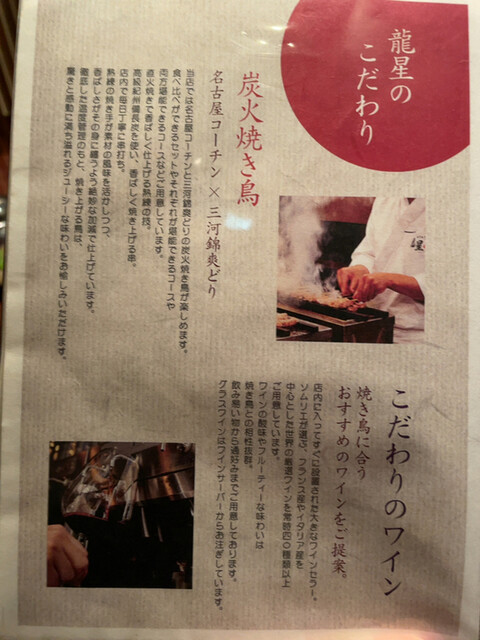 龍星の
こだわり
炭火焼き鳥
名古屋コーチン×三河錦爽どり
当店では名古屋コーチンと三河錦爽どりの炭火焼き鳥が楽しめます。
食べ比べができるセットやそれぞれが堪能できるコースや
両方堪能できるコースなどご用意しています。
直火焼きで香ばしく仕上げる熟練の技。
高級紀州備長炭を使い、香ばしく焼き上げる串。
店内で毎日丁寧に串打ち。
熟練の焼き手が素材の風味を活かしつつ、
香ばしさがその身に纏うよう絶妙な加減で仕上げています。
徹底した温度管理のもと、焼き上がる鳥は、
驚きと感動に満ち溢れるジューシーな味わいをお愉しみいただけます。
こだわりのワイン
焼き鳥に合う
おすすめのワインをご提案。
店内に入ってすぐに設置された大きなワインセラー。
ソムリエが選ぶ、フランス産やイタリア産を
中心とした世界の厳選ワインを常時四〇種類以上
ご用意しています。
ワインの酸味やフルーティーな味わいは
焼き鳥との相性抜群。
飲み易い物から通好みまでご用意しております。
グラスワインはワインサーバーからお注ぎしています。